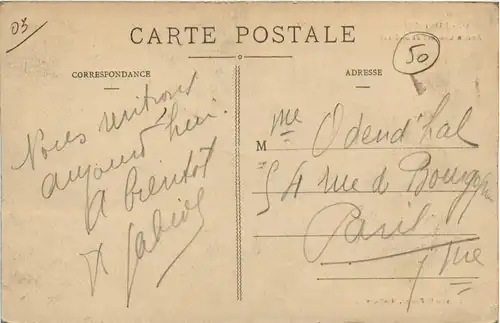 03
CARTE POSTALE
50
CORRESPONDANCE
ADRESSE
Nous rentrons
aujourd'hui.
A bientot
M me Odend'hal
54 rue de Bourgogne
Paris
7 me